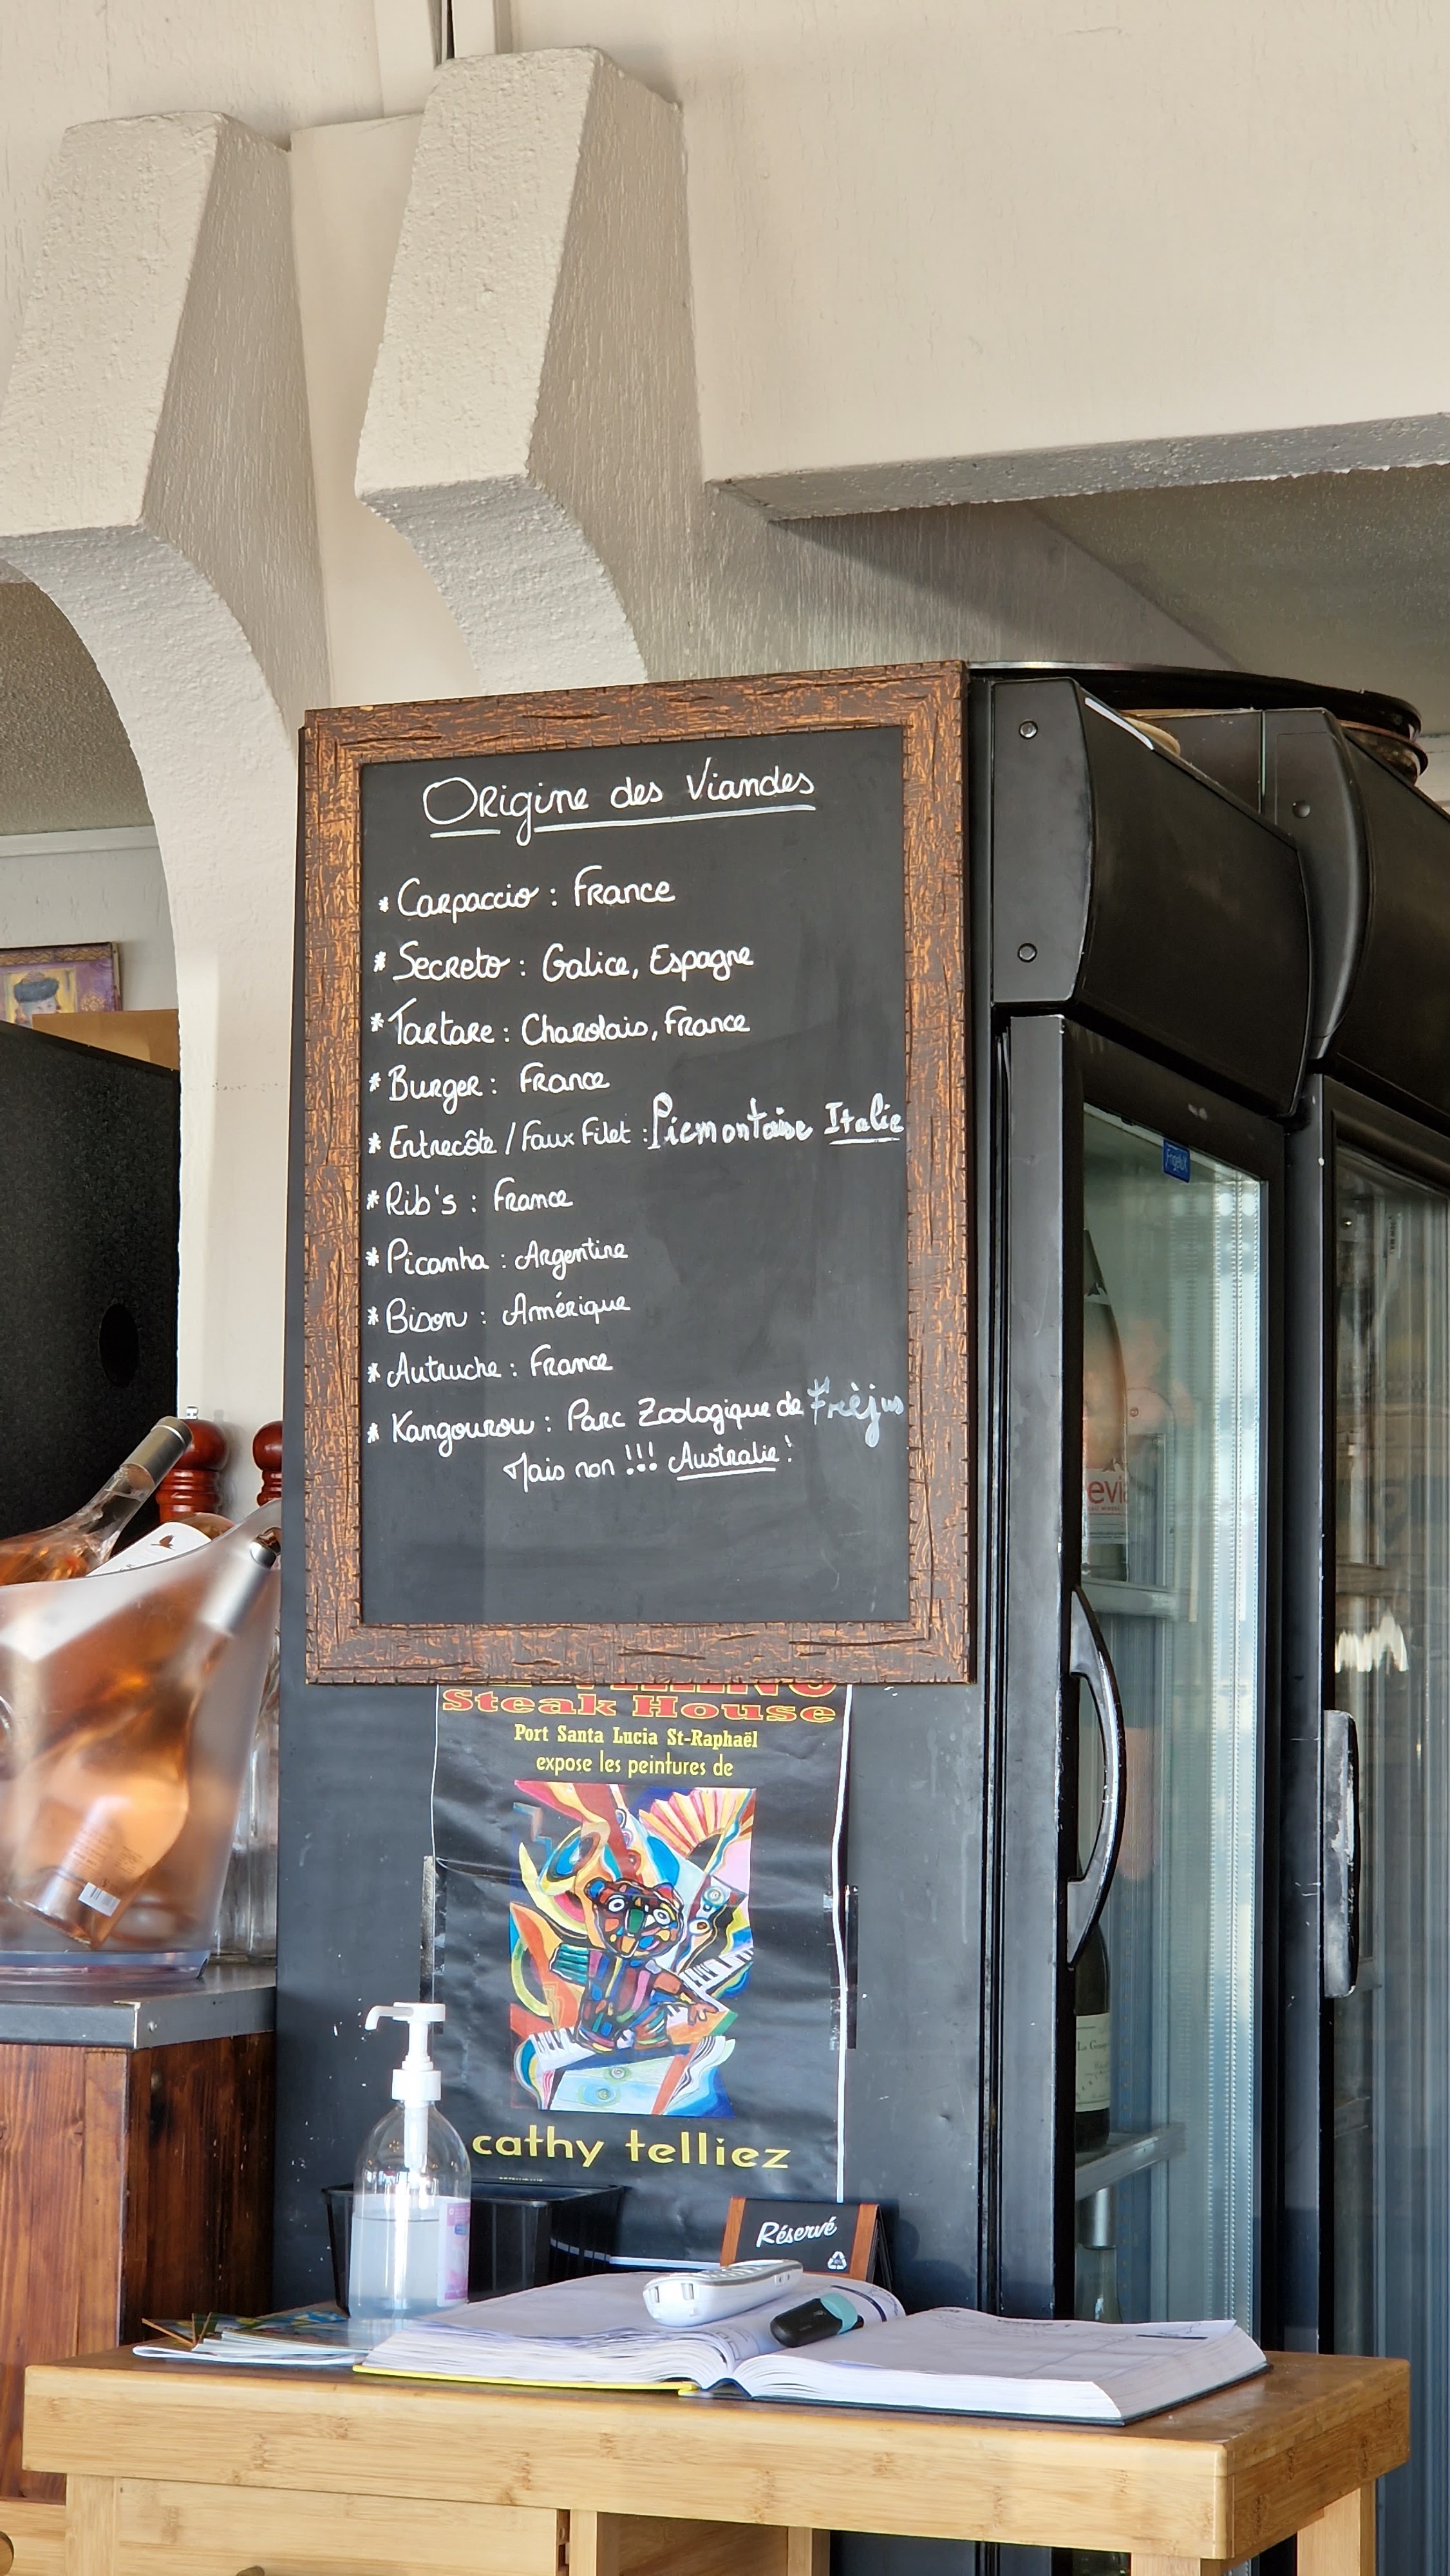 Origine des Viandes
* Carpaccio : France
* Secreto : Galice, Espagne
* Tartare : Charolais, France
* Burger : France
* Entrecôte / Faux Filet : Piemontaise Italie
* Rib's : France
* Picanha : Argentine
* Bison : Amérique
* Autruche : France
* Kangourou : Parc Zoologique de Fréjus
Mais non !!! Australie !
Steak House
Port Santa Lucia St-Raphaël
expose les peintures de
cathy telliez
Réservé
evi